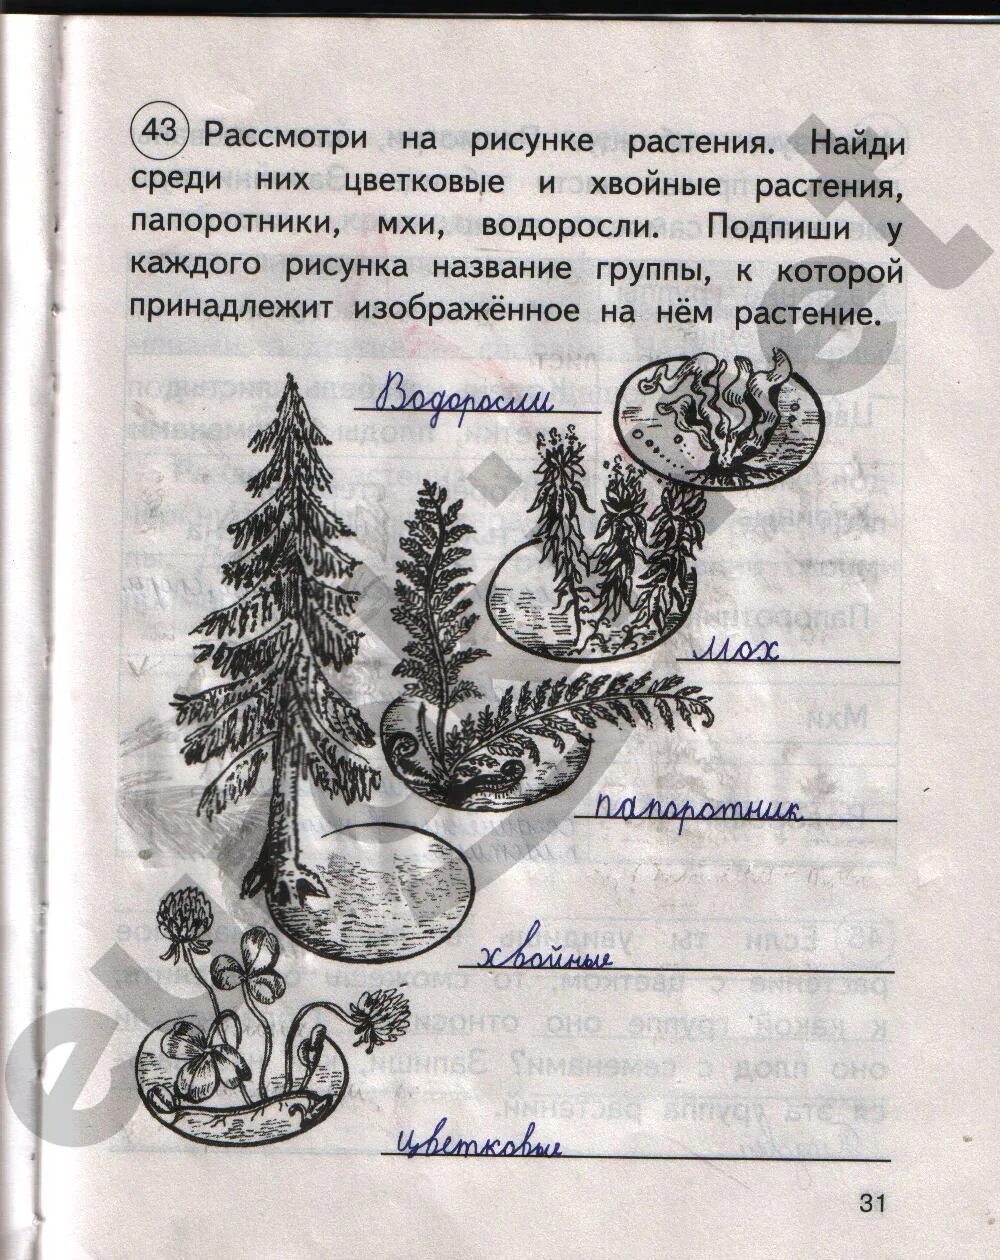 43 Рассмотри на рисунке растения. Найди
среди них цветковые и хвойные растения,
папоротники, мхи, водоросли. Подпиши у
каждого рисунка название группы, к которой
принадлежит изображённое на нём растение.
Водоросли
мох
папоротник
хвойные
цветковые
31